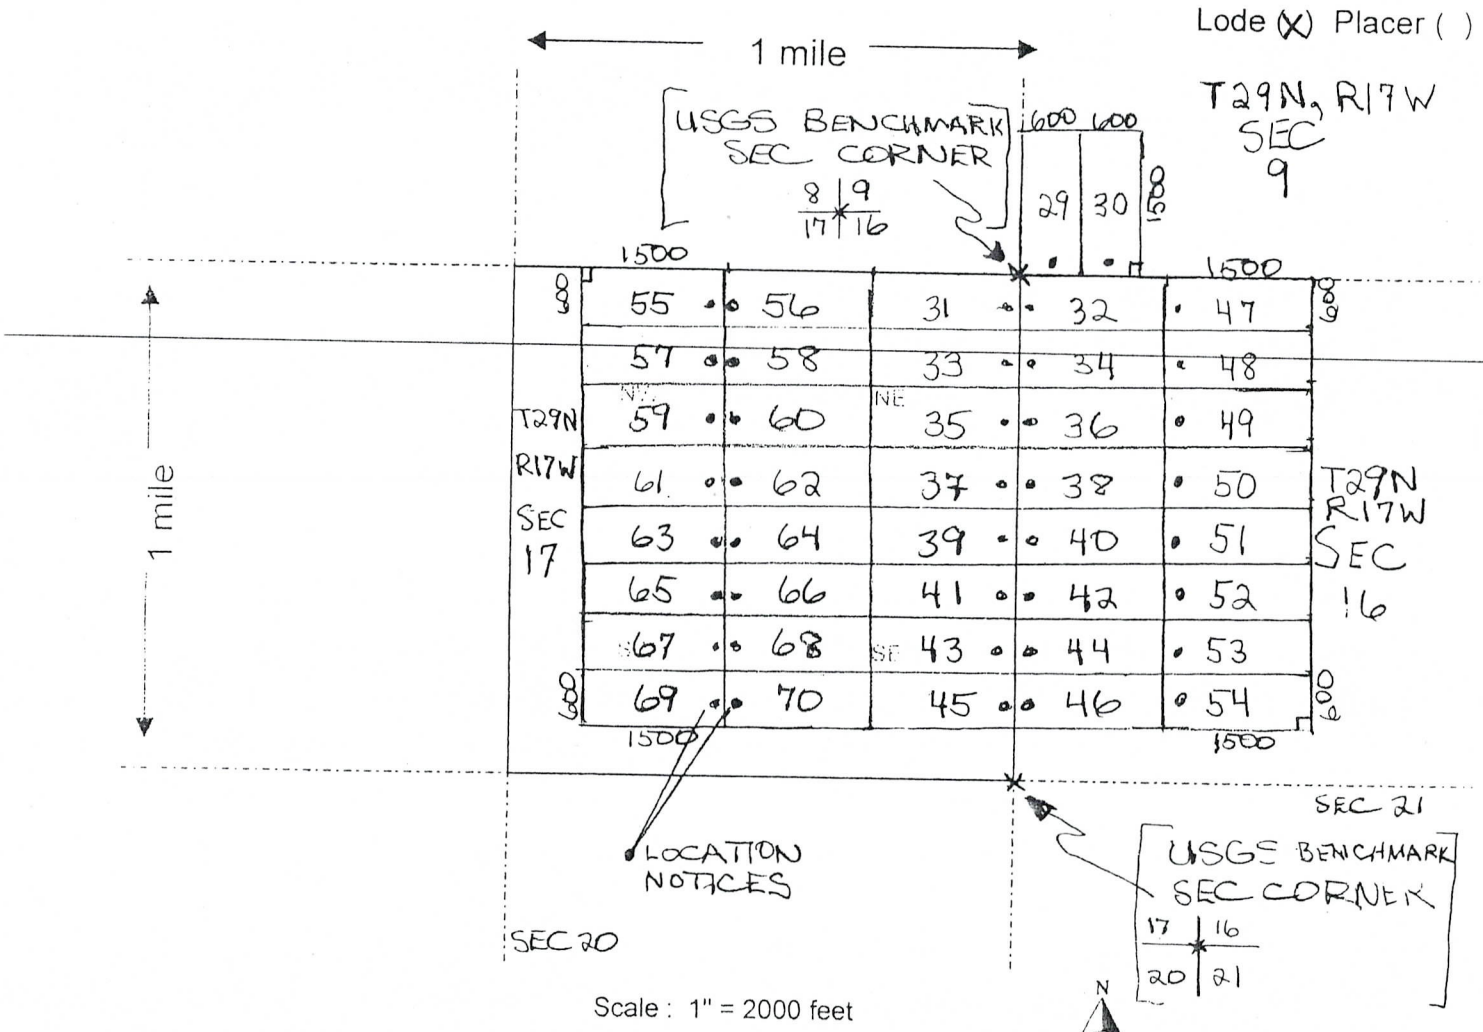 Lode (X) Placer ( )
1 mile
T29N, R17W
SEC
9
USGS BENCHMARK
SEC CORNER
8 9
17 16
600 600
29 30
1500
1500
1500
600
600
55 56 31 32 47
57 58 33 34 48
NW NE
59 60 35 36 49
61 62 37 38 50
63 64 39 40 51
65 66 41 42 52
SE
67 68 43 44 53
69 70 45 46 54
T29N
R17W
SEC
17
1 mile
T29N
R17W
SEC
16
600
600
1500
1500
LOCATION
NOTICES
SEC 21
USGS BENCHMARK
SEC CORNER
17 16
20 21
SEC 20
N
Scale : 1" = 2000 feet